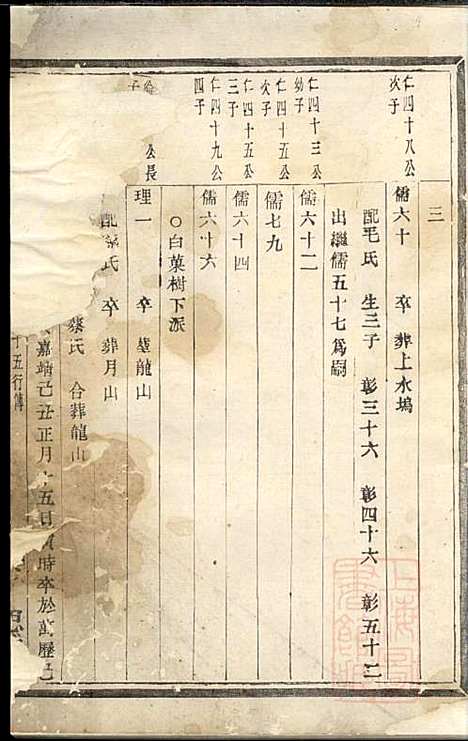 三
仁四十八公
次子
儒六十 卒 葬上水塢
配毛氏 生三子 彰三十六 彰四十六 彰五十二
出繼儒五十七爲嗣
仁四十三公
幼子
儒六十二
仁四十五公
次子
儒七九
仁四十五公
三子
儒六十四
仁四十九公
四子
儒六十六
○白菓樹下派
公長
子
理一 卒 墓龍山
氏 卒 葬月山
蔡氏 合葬龍山
嘉靖己丑正月十五日 時卒於萬歷己
十五行傳